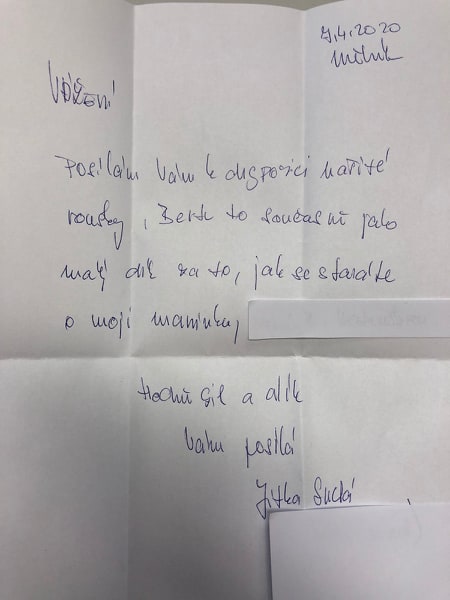 7.4.2020
Mělník
Vážení
Posílám Vám k dispozici našité
roušky, Berte to současně jako
malý dík za to, jak se staráte
o moji maminku,
Hodně sil a dík
Vám posílá
Jitka Suchá